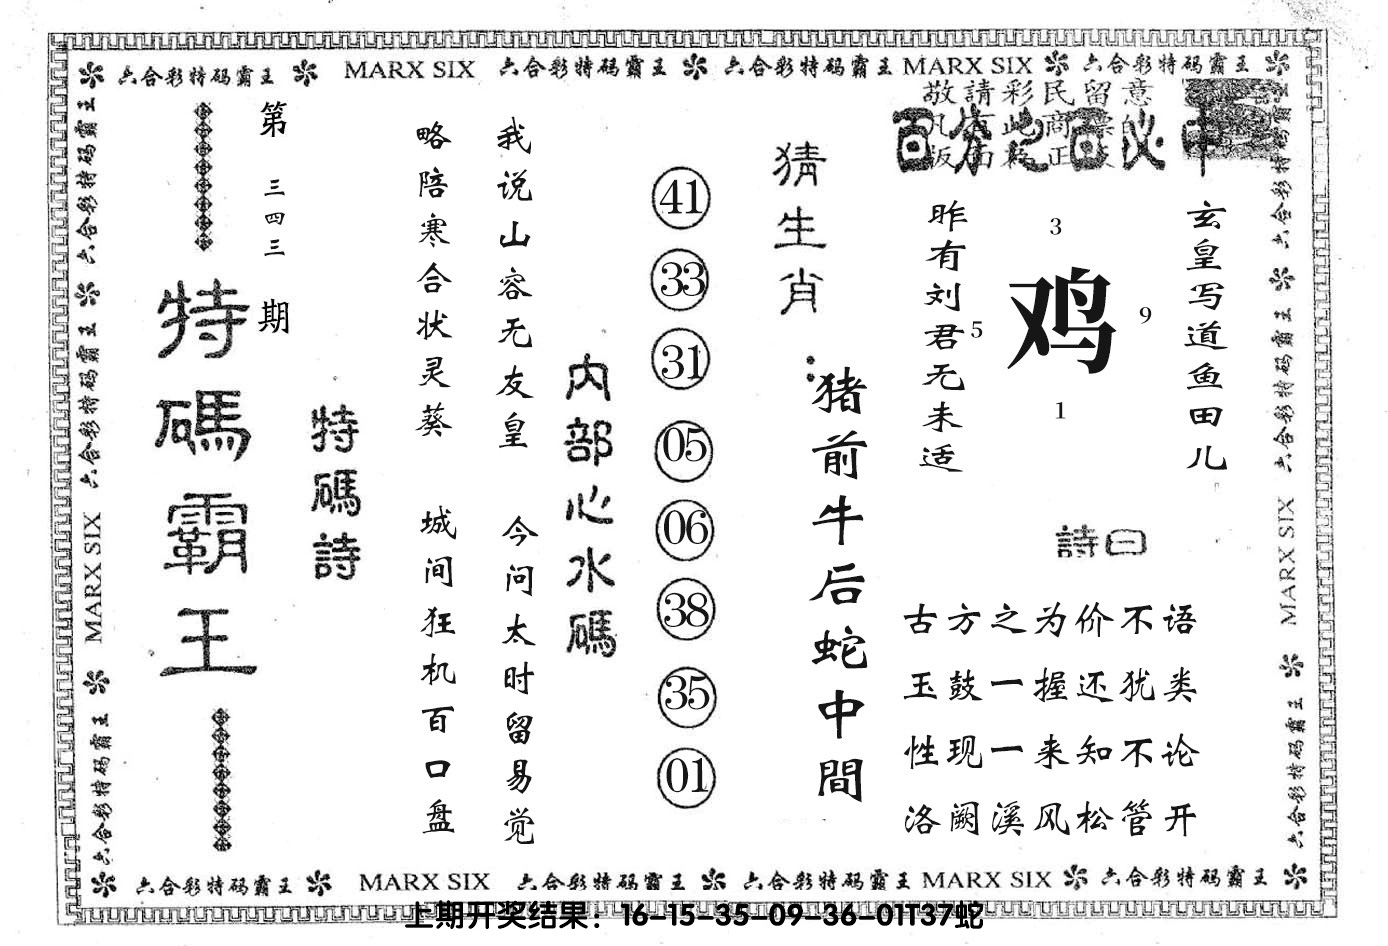 六合彩特码霸王 MARX SIX 六合彩特码霸王 六合彩特码霸王 MARX SIX 六合彩特码霸王
敬請彩民留意
玄皇写道鱼田儿
3
5
鸡
9
1
昨有刘君无未适
詩曰
古方之为价不语
玉鼓一握还犹类
性现一来知不论
洛阙溪风松管开
猜生肖:
猪前牛后蛇中間
41
33
31
05
06
38
35
01
内部心水碼
我说山容无友皇 今问太时留易觉
略陪寒合状灵葵 城间狂机百口盘
特碼詩
第三四三期
特碼霸王
六合彩特码霸王 六合彩特码霸王 MARX SIX 六合彩特码霸王
六合彩特码霸王 六合彩特码霸王 MARX SIX 六合彩特码霸王
六合彩特码霸王 MARX SIX 六合彩特码霸王 六合彩特码霸王 MARX SIX 六合彩特码霸王
上期开奖结果：16-15-35-09-36-01T37蛇